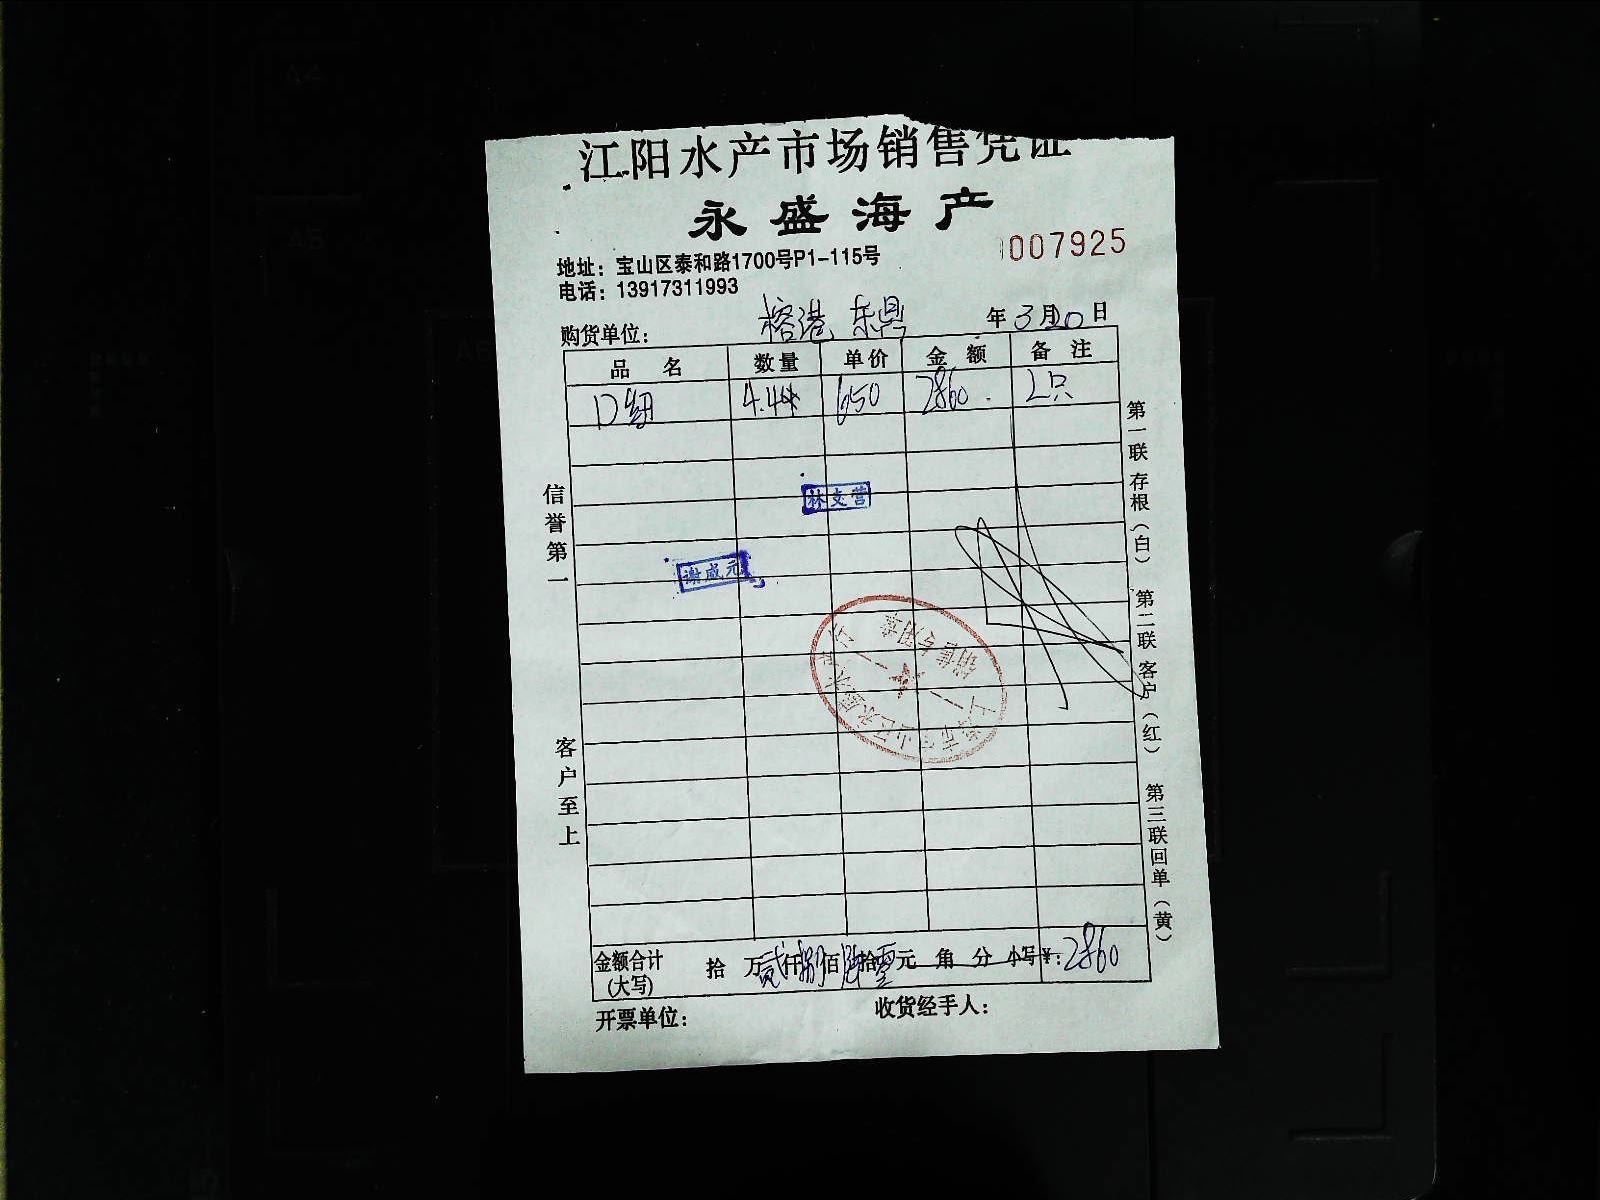 江阳水产市场销售凭证
永盛海产
007925
地址：宝山区泰和路1700号P1-115号
电话：13917311993
购货单位： 榕港 东鼎 年3月20日
品名 数量 单价 金额 备注
650 2860. 2只
林支营
谢成元
销售专用章
信誉第一
客户至上
第一联存根（白） 第二联客户（红） 第三联回单（黄）
金额合计（大写） 拾万贰仟捌佰陆拾零元角分 小写￥：2860
开票单位： 收货经手人：